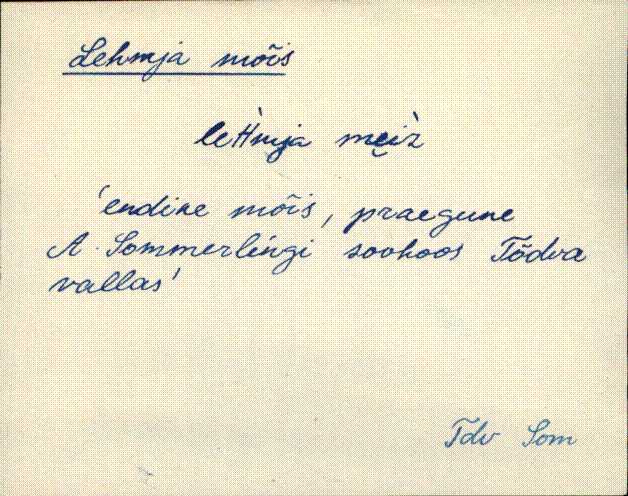 Lehmja mõis
leHmja mẹi̮z̀
'endine mõis, praegune
A. Sommerlingi sovhoos Tõdva
vallas'
Tdv Som